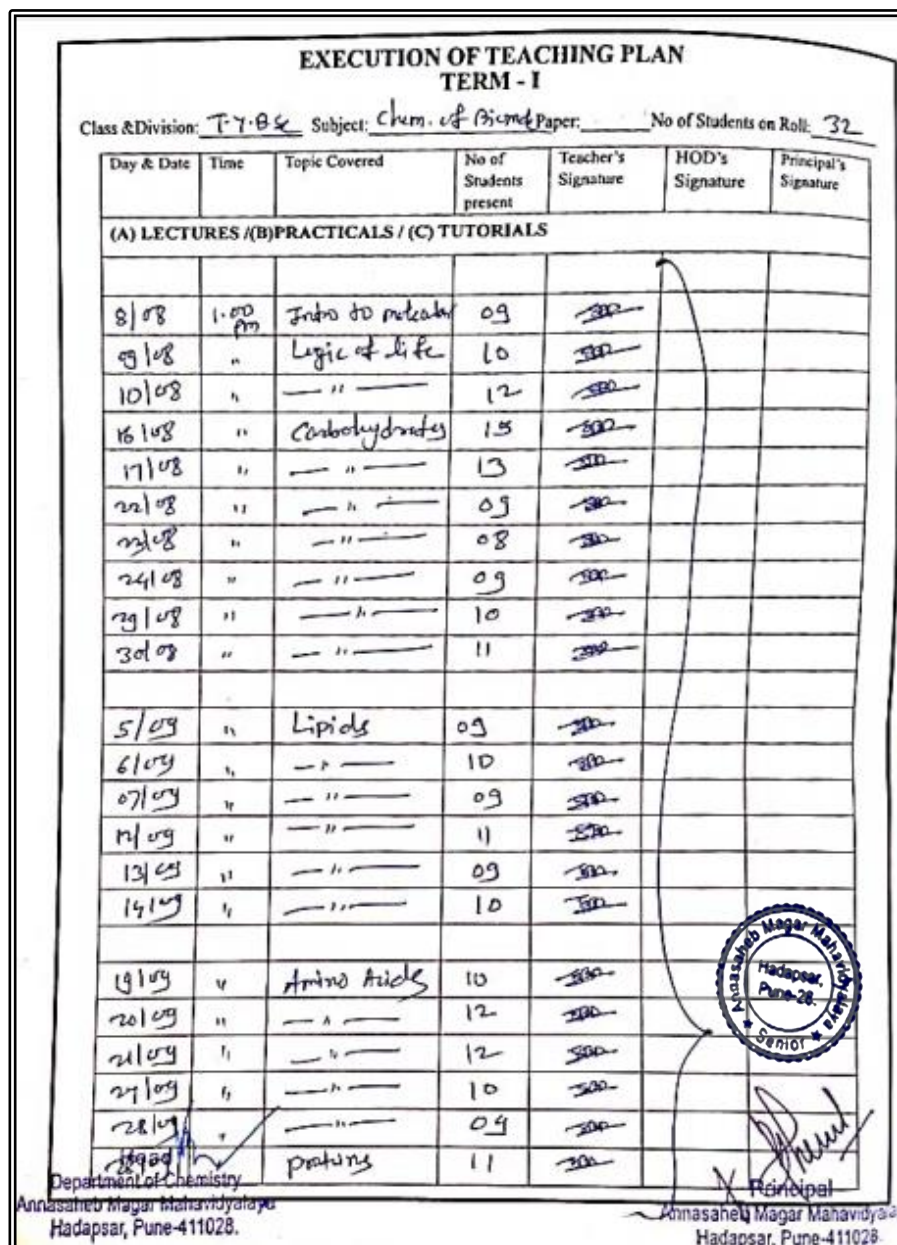 EXECUTION OF TEACHING PLAN
TERM - I
Class &Division: T.Y.BSc Subject: Chem. of Biomol Paper: No of Students on Roll: 32
Day & Date Time Topic Covered No of Students present Teacher's Signature HOD's Signature Principal's Signature
(A) LECTURES /(B)PRACTICALS / (C) TUTORIALS
8/08 1.00 pm Intro to molecular 09
09/08 " Logic of life 10
10/08 " — " — 12
16/08 " Carbohydrates 15
17/08 " — " — 13
22/08 " — " — 09
23/08 " — " — 08
24/08 " — " — 09
29/08 " — " — 10
30/08 " — " — 11
5/09 " Lipids 09
6/09 " — " — 10
07/09 " — " — 09
12/09 " — " — 11
13/09 " — " — 09
14/09 " — " — 10
19/09 " Amino Acids 10
20/09 " — " — 12
21/09 " — " — 12
27/09 " — " — 10
28/09 " — " — 09
proteins 11
Annasaheb Magar Mahavidyalaya
Hadapsar,
Pune-28.
★ Senior ★
Head
Department of Chemistry
Annasaheb Magar Mahavidyalaya
Hadapsar, Pune-411028.
Principal
Annasaheb Magar Mahavidyala
Hadapsar, Pune-411028.